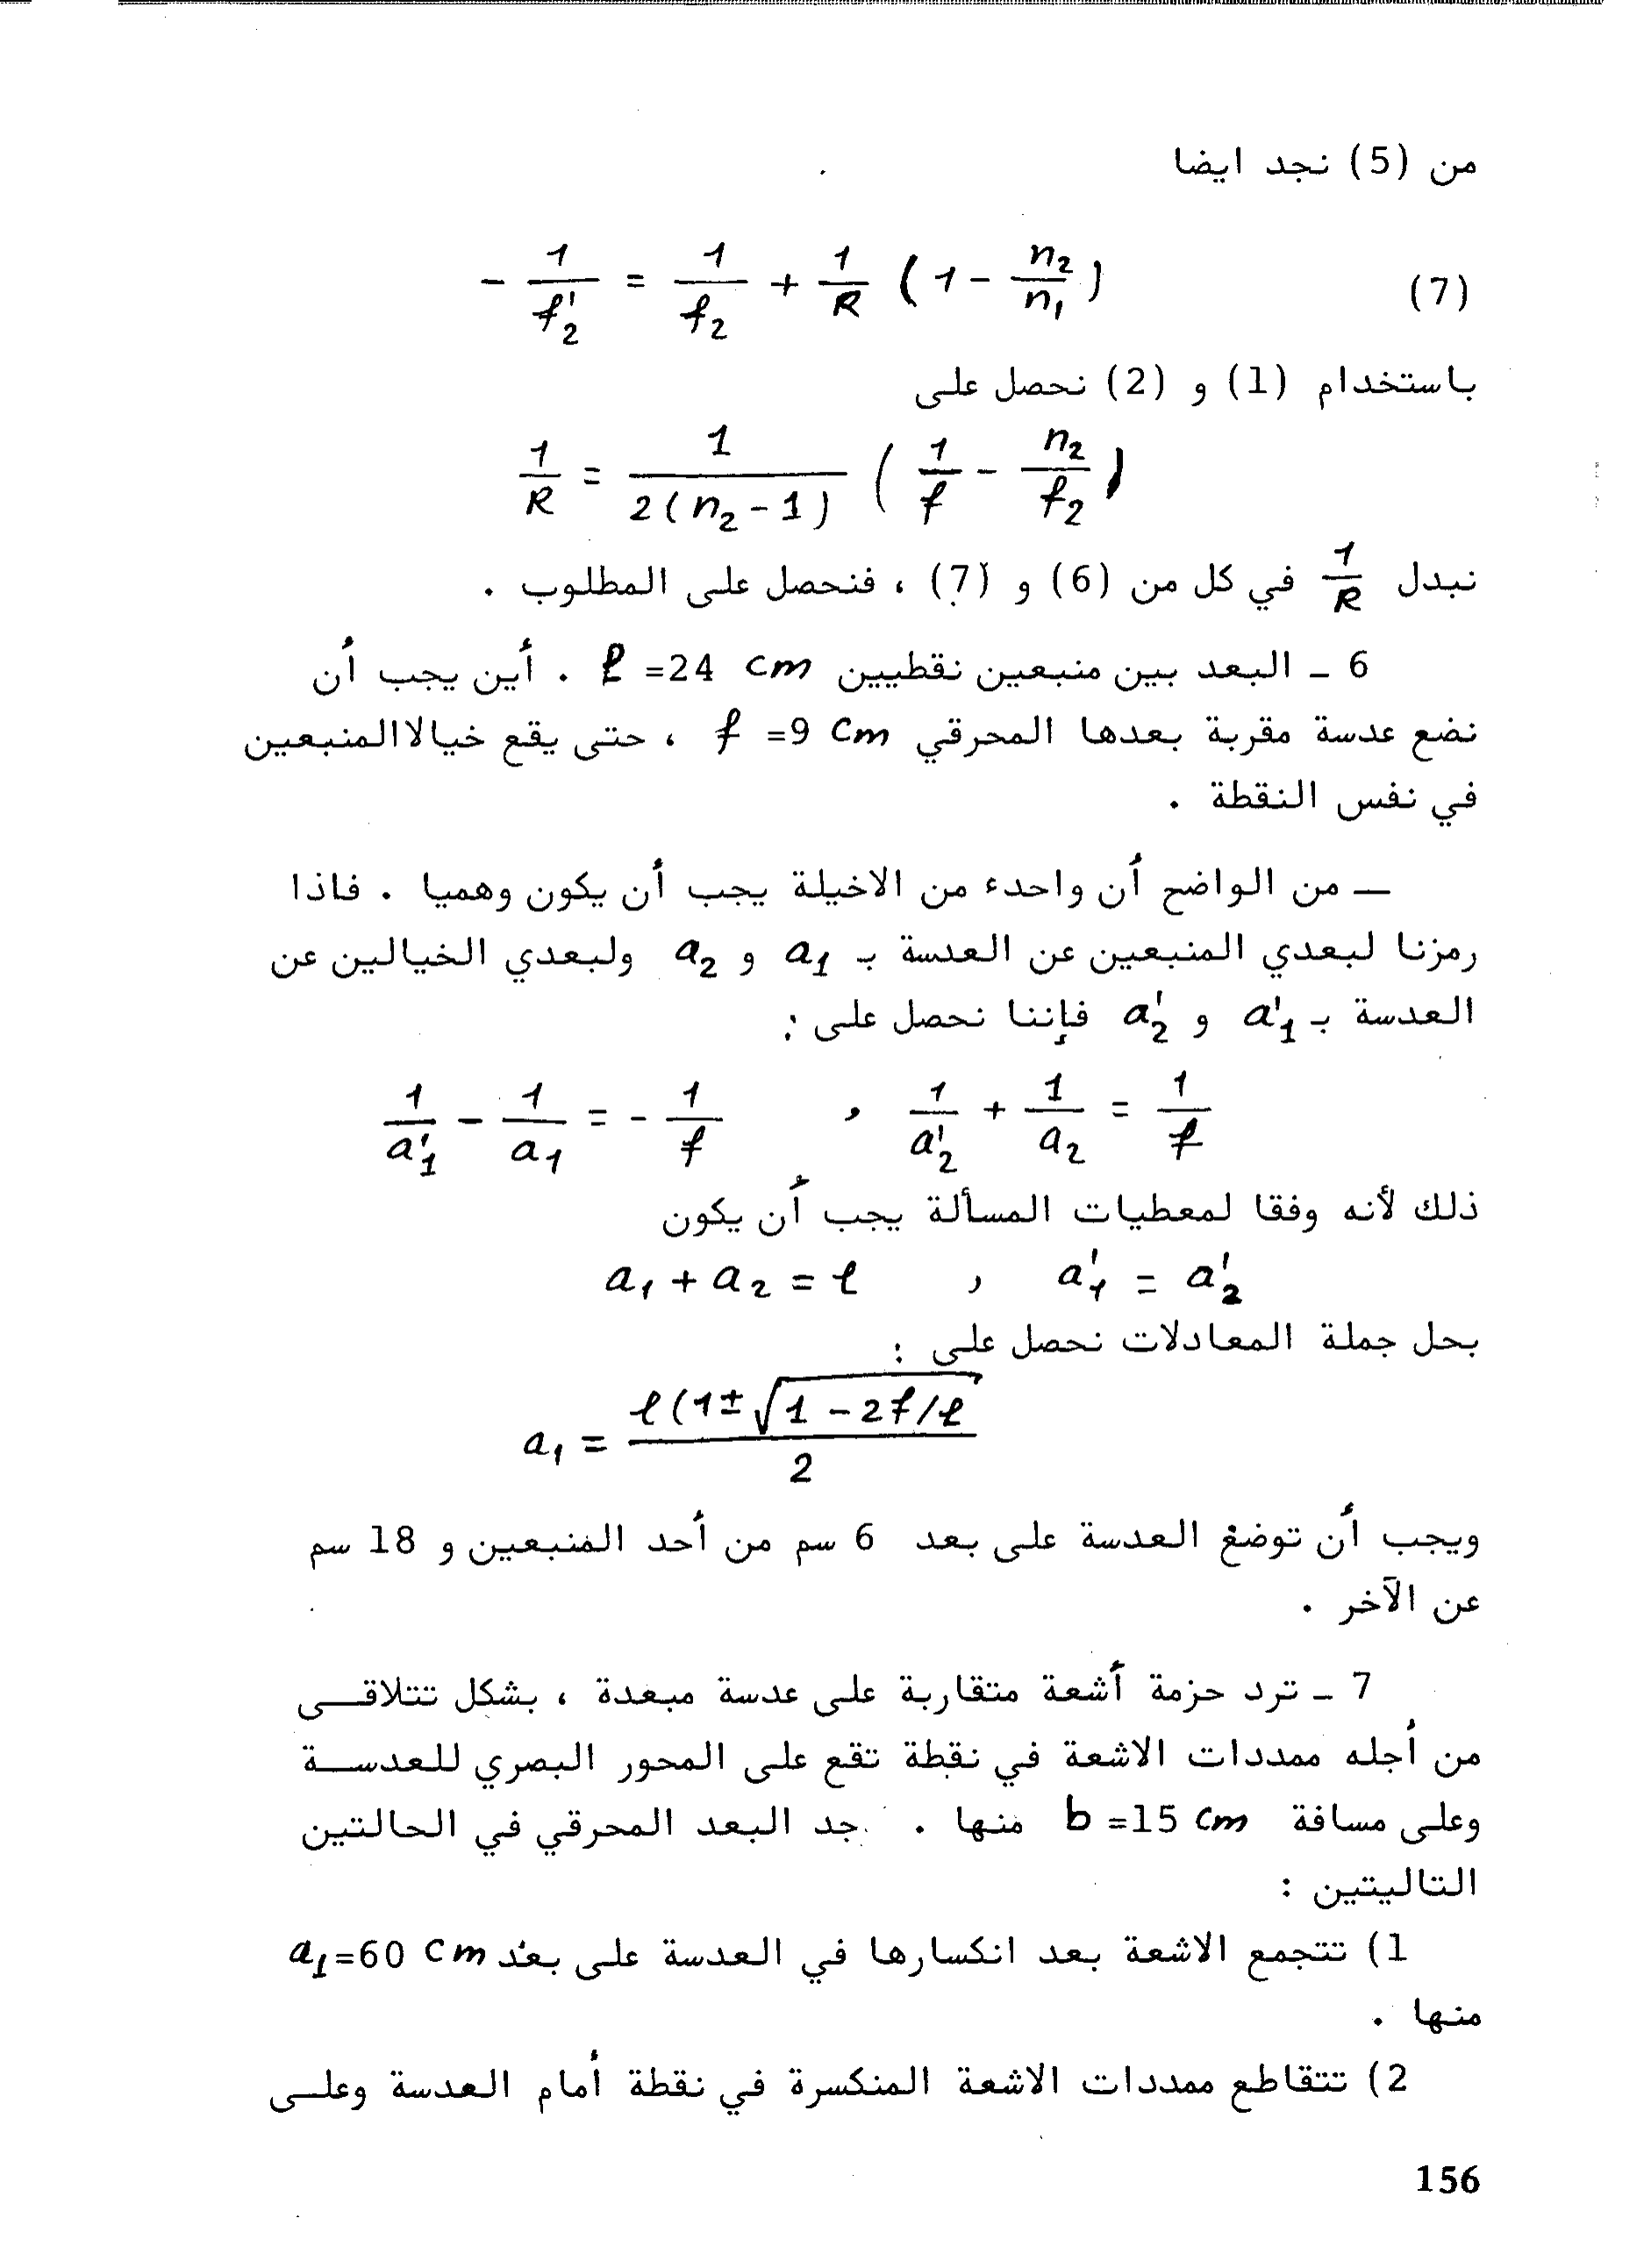 من (5) نجد ايضا
- 1/f'₂ = 1/f₂ + 1/R (1 - n₂/n₁) (7)
باستخدام (1) و (2) نحصل على
1/R = 1/2(n₂-1) (1/f - n₂/f₂)
نبدل 1/R في كل من (6) و (7) ، فنحصل على المطلوب .
6 ـ البعد بين منبعين نقطيين ℓ =24 cm . أين يجب أن
نضع عدسة مقربة بعدها المحرقي f =9 cm ، حتى يقع خيالا المنبعين
في نفس النقطة .
— من الواضح أن واحدء من الاخيلة يجب أن يكون وهميا . فاذا
رمزنا لبعدي المنبعين عن العدسة بـ a₁ و a₂ ولبعدي الخيالين عن
العدسة بـ a'₁ و a'₂ فإننا نحصل على :
1/a'₁ - 1/a₁ = - 1/f , 1/a'₂ + 1/a₂ = 1/f
ذلك لأنه وفقا لمعطيات المسألة يجب أن يكون
a₁ + a₂ = ℓ , a'₁ = a'₂
بحل جملة المعادلات نحصل على :
a₁ = ℓ(1±√1 - 2f/ℓ / 2
ويجب أن توضع العدسة على بعد 6 سم من أحد المنبعين و 18 سم
عن الآخر .
7 ـ ترد حزمة أشعة متقاربة على عدسة مبعدة ، بشكل تتلاقـــى
من أجله ممددات الاشعة في نقطة تقع على المحور البصري للعدســـة
وعلى مسافة b =15 cm منها . جد البعد المحرقي في الحالتين
التاليتين :
1) تتجمع الاشعة بعد انكسارها في العدسة على بعد a₁=60 cm
منها .
2) تتقاطع ممددات الاشعة المنكسرة في نقطة أمام العدسة وعلــى
156